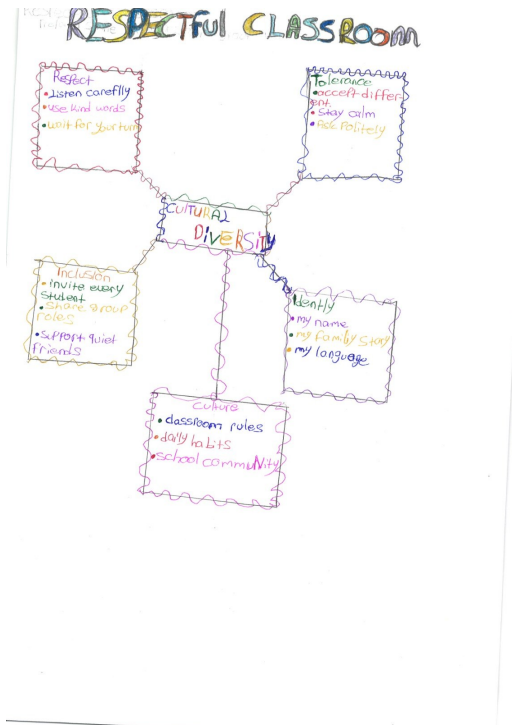 RESPECTFUL CLASSROOM
Respect
• Listen careflly
• use kind words
• wait for your turn
Tolerance
• accept differ
ent.
• stay calm
• Ask Politely
CULTURAL
DIVERSITY
Inclusion
• invite every
student
• share group
roles
• support quiet
friends
Idently
• my name
• my family story
• my language
Culture
• classroom rules
• daily habits
• school community